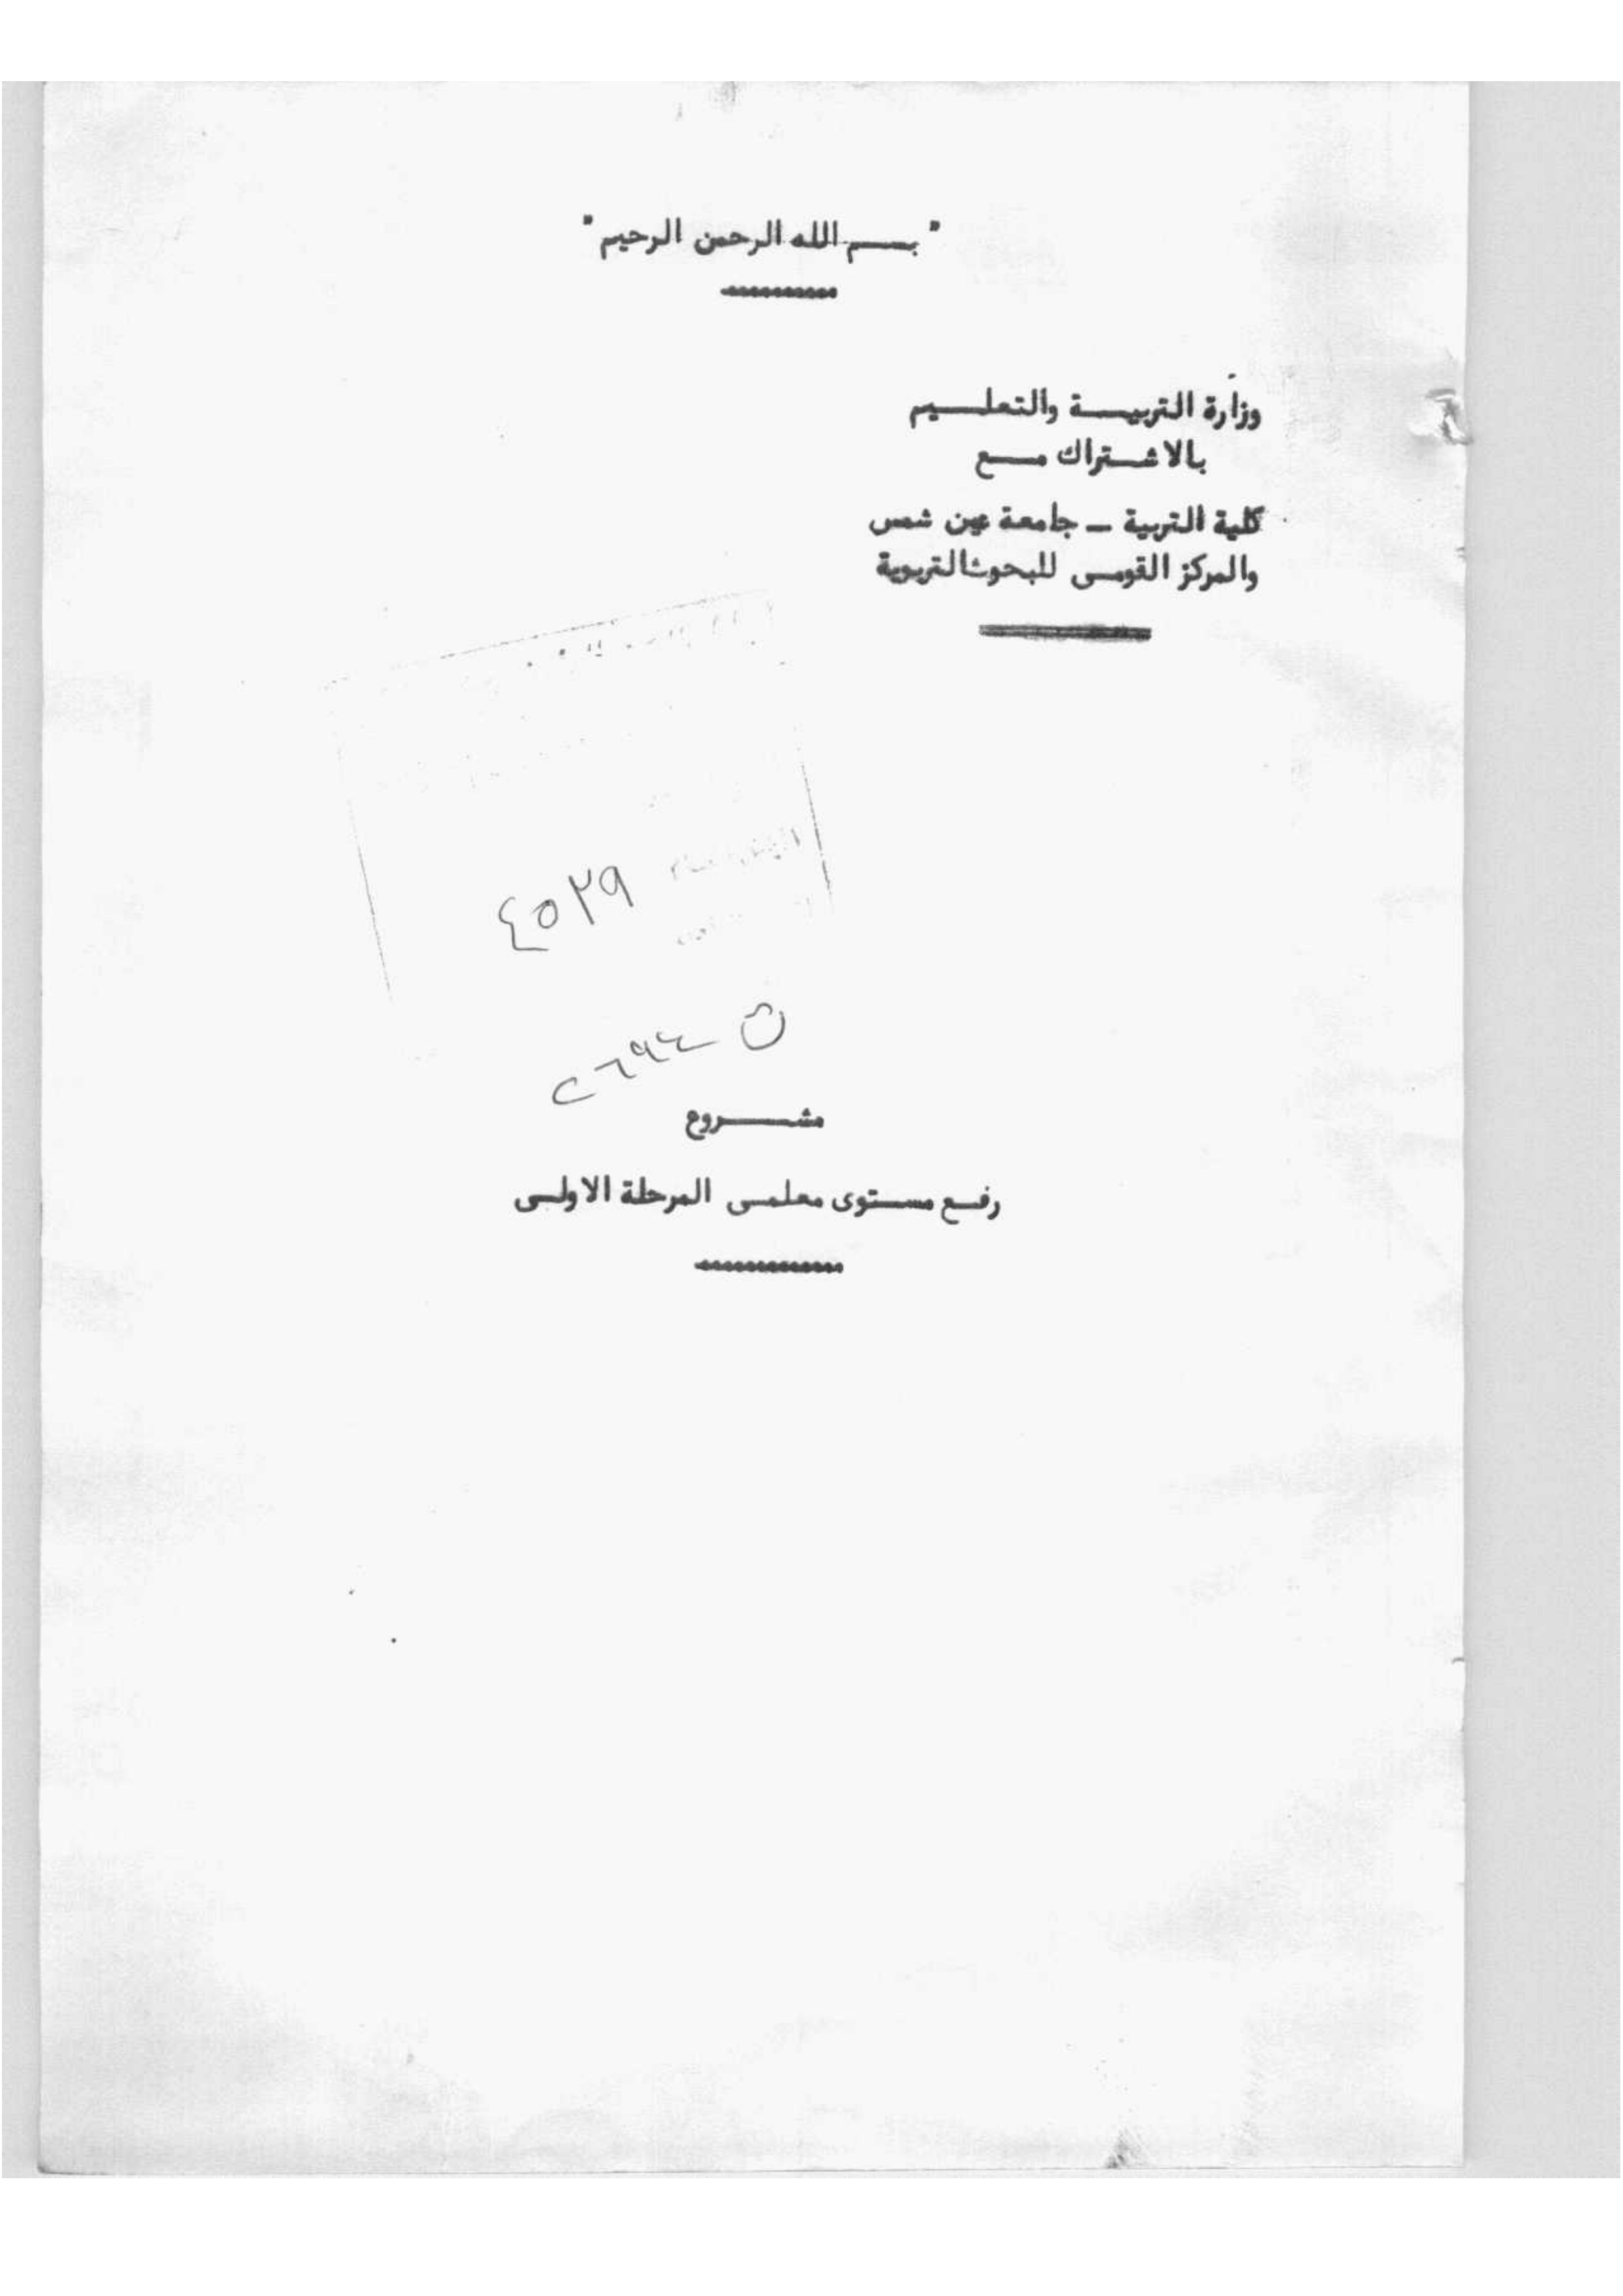 " بسم الله الرحمن الرحيم "
وزارة التربية والتعليم
بالاشتراك مع
كلية التربية – جامعة عين شمس
والمركز القومى للبحوث التربوية
٤٥٢٩
مشروع
رفع مستوى معلمى المرحلة الاولى